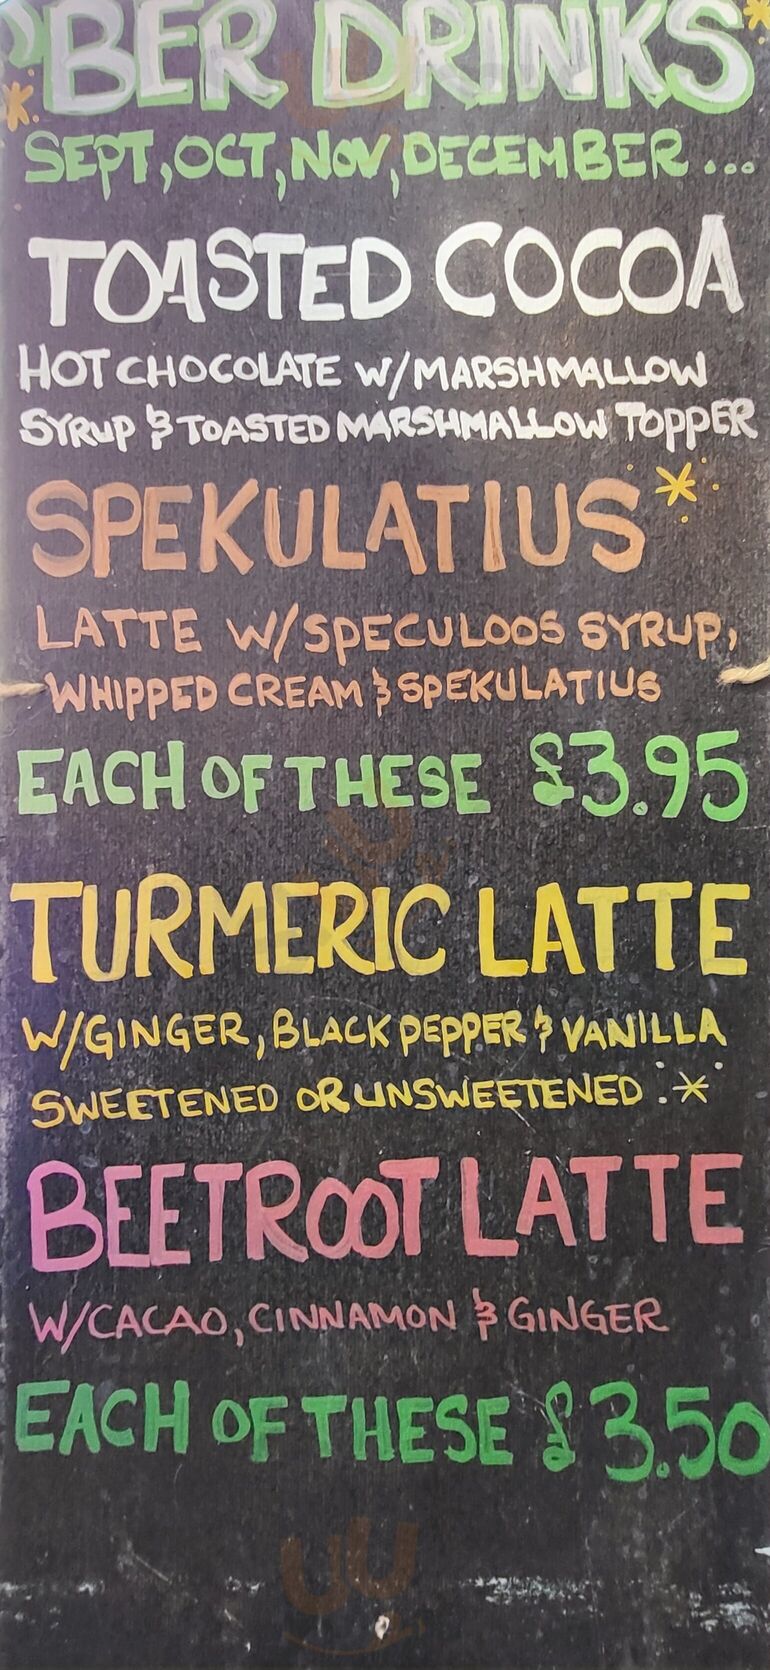 'BER DRINKS
SEPT, OCT, NOV, DECEMBER...
TOASTED COCOA
HOT CHOCOLATE W/MARSHMALLOW
SYRUP & TOASTED MARSHMALLOW TOPPER
SPEKULATIUS
LATTE W/SPECULOOS SYRUP,
WHIPPED CREAM & SPEKULATIUS
EACH OF THESE £3.95
TURMERIC LATTE
W/GINGER, BLACK PEPPER & VANILLA
SWEETENED OR UNSWEETENED
BEETROOT LATTE
W/CACAO, CINNAMON & GINGER
EACH OF THESE £3.50